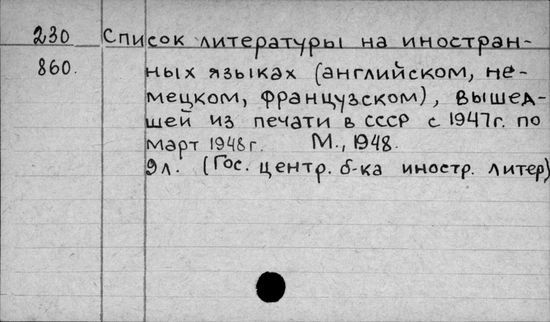 230 Список литературы на иностран-
860. ных языках (английском, не-
мецком, французском), вышед-
шей из печати в СССР с 1947г. по
март 1948г. М., 1948.
9л. (Гос. центр. б-ка иностр. литер)